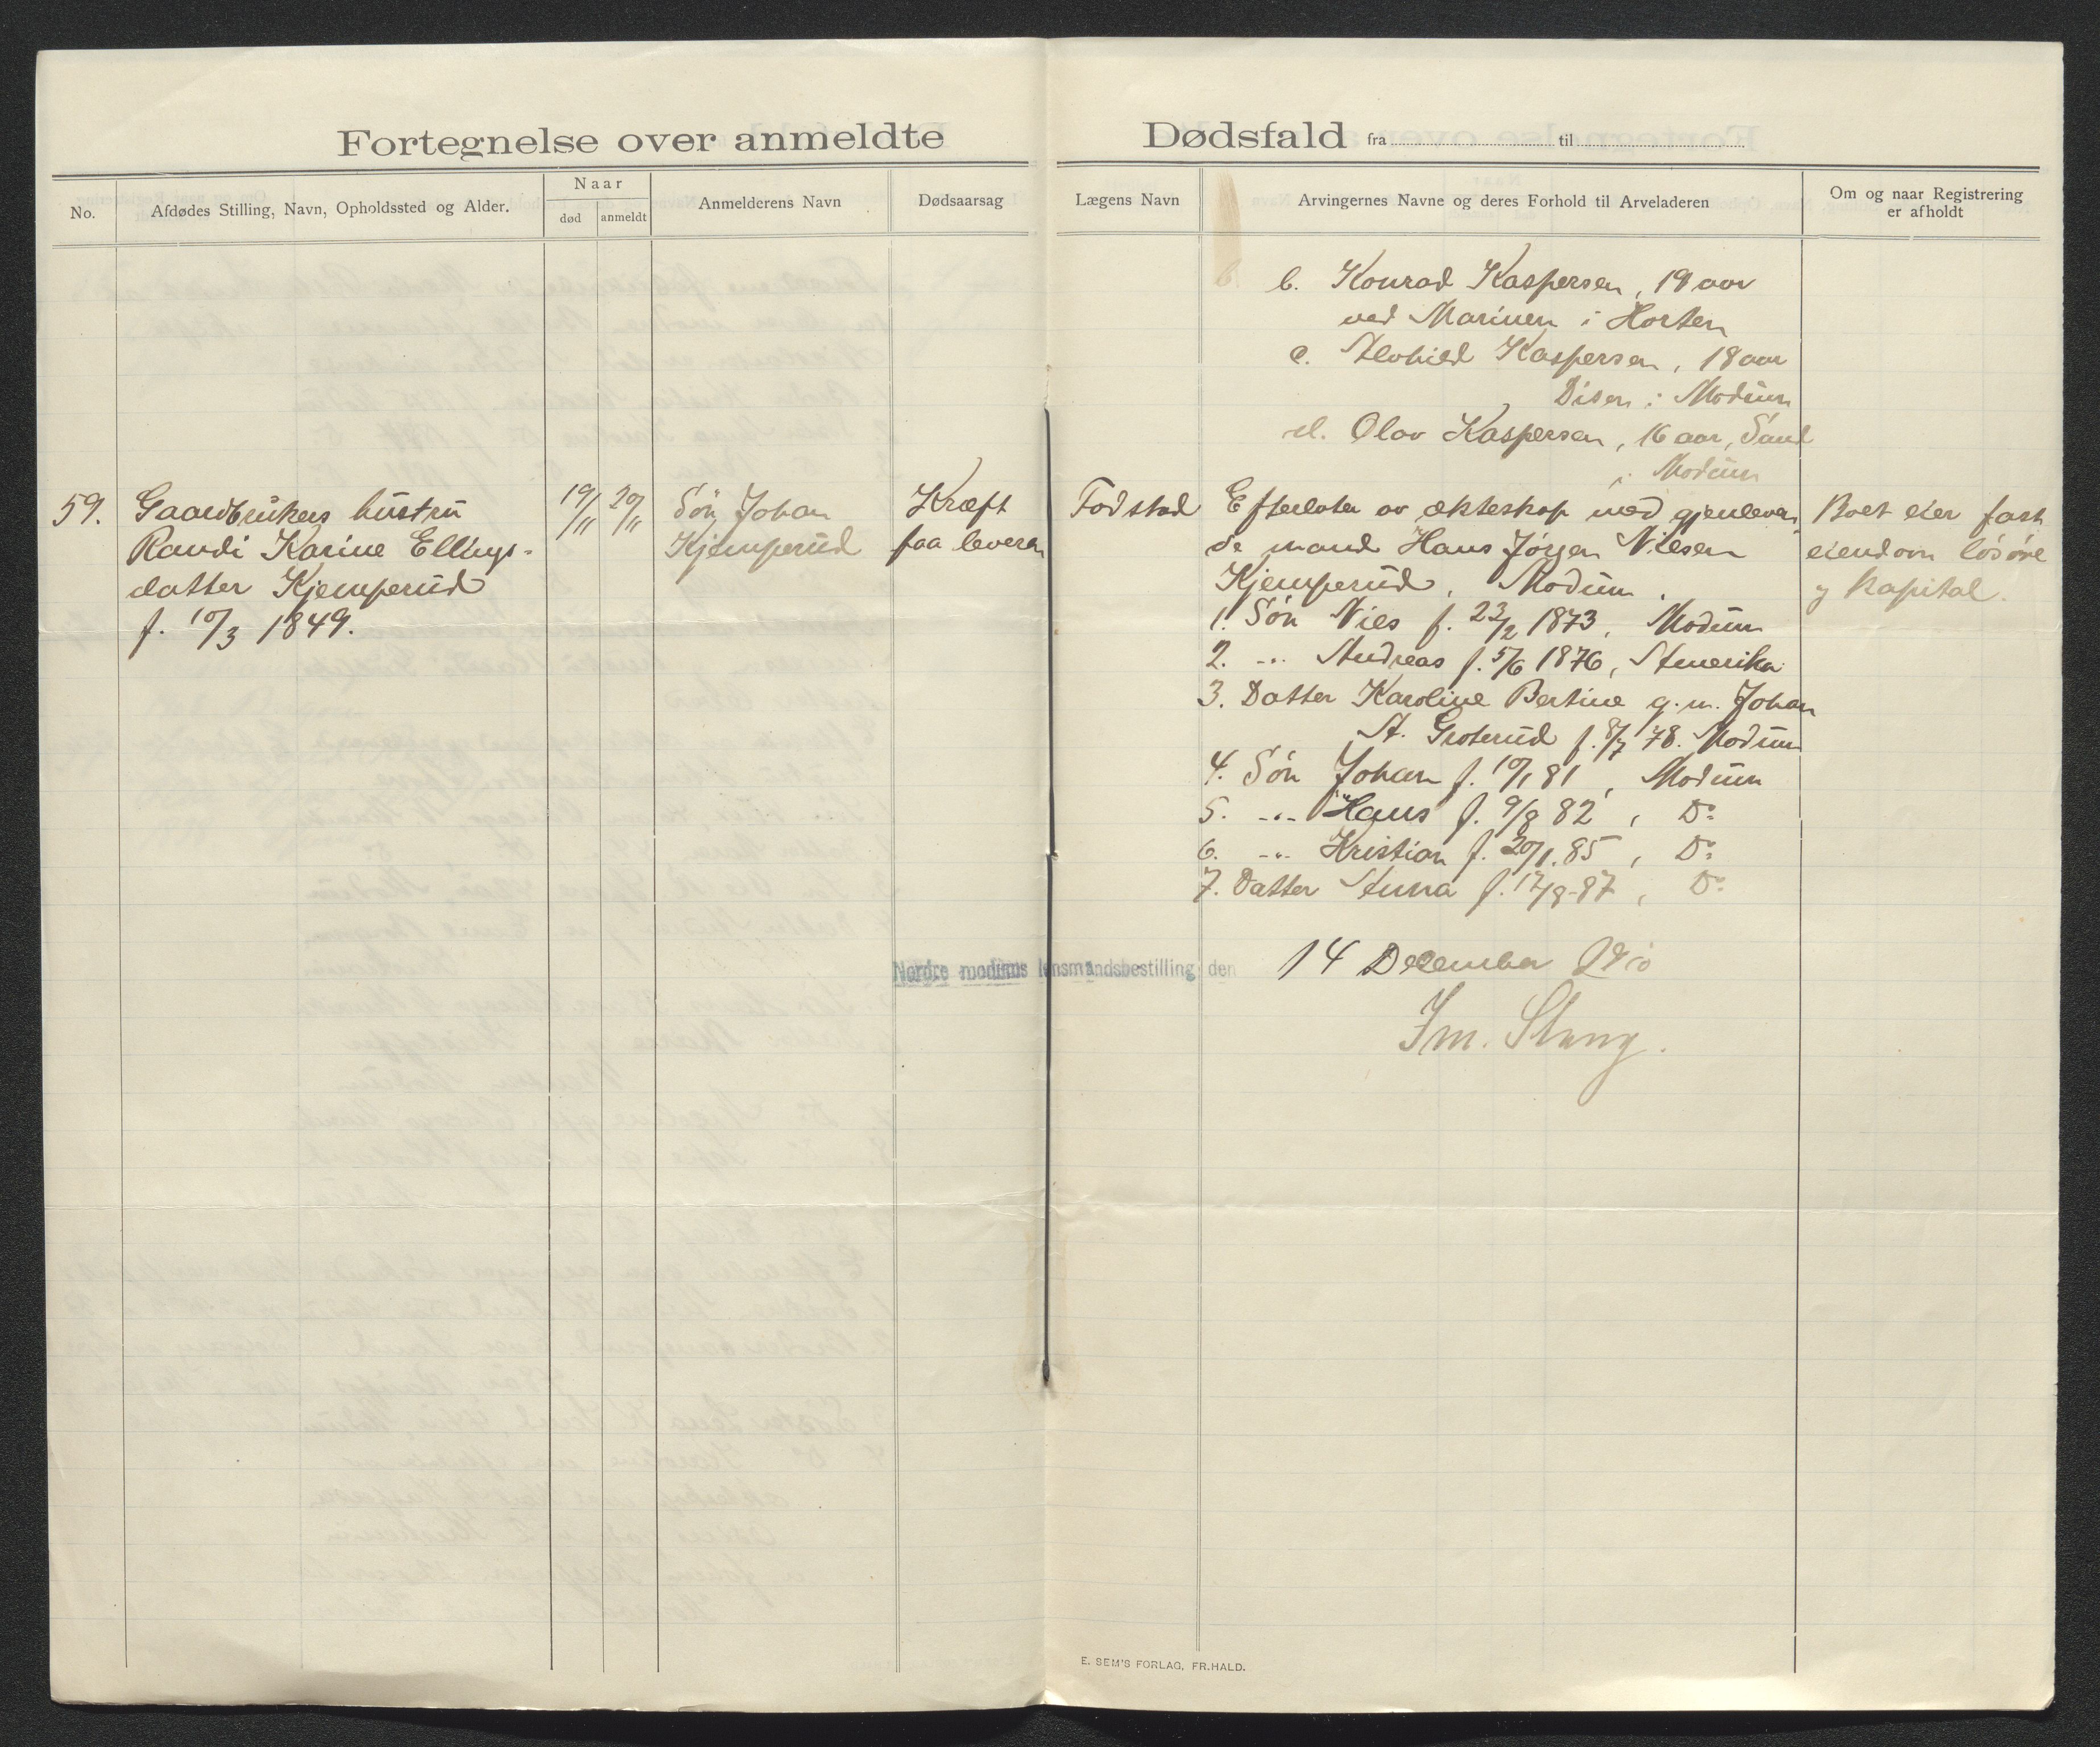 Fortegnelse over anmeldte Dødsfald fra til
No.
Afdødes Stilling, Navn, Opholdssted og Alder.
Naar
død anmeldt
Anmelderens Navn
Dødsaarsag
Lægens Navn
Arvingernes Navne og deres Forhold til Arveladeren
Om og naar Registrering
er afholdt
b. Konrad Kaspersen, 19 aar
ved Marinen i Horten
c. Alvhild Kaspersen, 18 aar
Disen i Modum
d. Olav Kaspersen, 16 aar, Sand
i Modum
59.
Gaardbrukers hustru
Randi Karine Ellings-
datter Kjemperud
f. 10/3 1849.
19/11
20/11
Søn Johan
Kjemperud
Kræft
paa leveren
Todstad
Efterlater av ekteskap med gjenleven
de mand Hans Jørgen Nilsen
Kjemperud, Modum.
1. Søn Nils f. 23/2 1873, Modum
2. -"- Andreas f. 5/6 1876, Amerika
3. Datter Karoline Bertine g.m. Johan
A. Groterud f. 8/7 78. Modum
4. Søn Johan f. 10/1 81, Modum
5. -"- Hans f. 9/8 82, Do
6. -"- Kristian f. 20/1. 85, Do
7. Datter Anna f. 17/8-87, Do
Boet eier fast
eiendom løsøre
og kapital.
Nordre modums lensmandsbestilling den 14 December 1910
Im. Stang.
E. SEM'S FORLAG, FR.HALD.